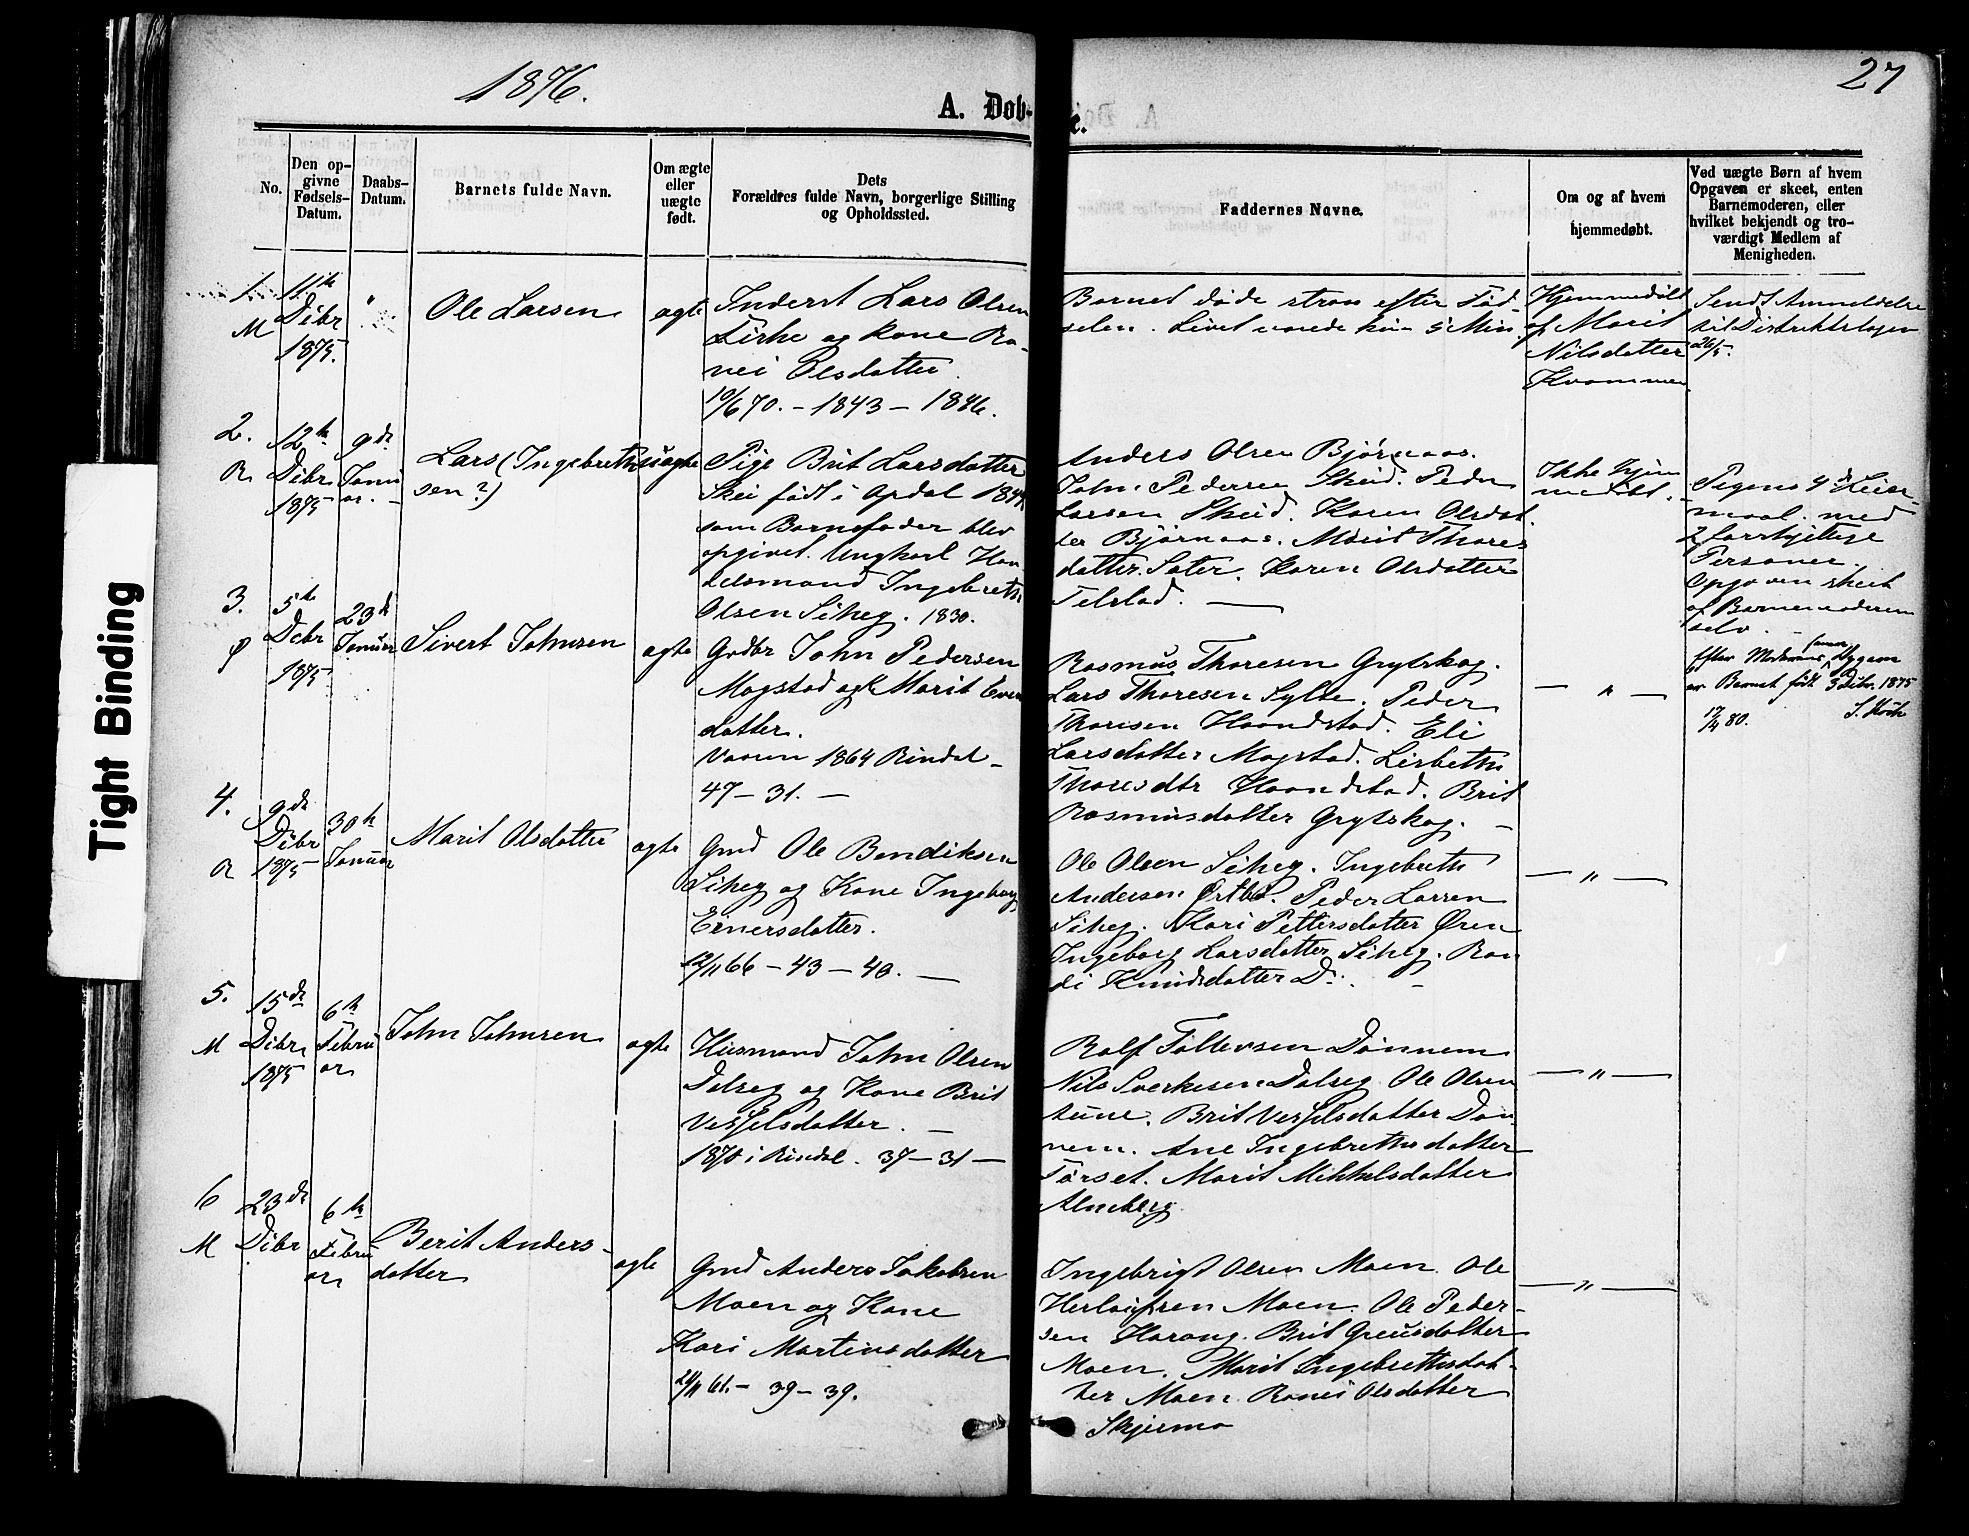 1876.
27
A. Døb-
e.
No.
Den op-
givne
Fødsels-
Datum.
Daabs-
Datum.
Barnets fulde Navn.
Om ægte
eller
uægte
født.
Dets
Forældres fulde Navn, borgerlige Stilling
og Opholdssted.
Faddernes Navne.
Om og af hvem
hjemmedøbt.
Ved uægte Børn af hvem
Opgaven er skeet, enten
Barnemoderen, eller
hvilket bekjendt og tro-
værdigt Medlem af
Menigheden.
1.
M
11te
Debr
1875.
"
Ole Larsen
ægte
Inderst Lars Olsen
og Kone Ra-
nei Olsdatter
10/6 70. - 1843 - 1846.
Barnet døde strax efter Fød-
selen. Livet varede kun 5 Min
Hjemmedøbt
af Marit
Nilsdatter
Kvammen
Sendt Anmeldelse
til Distriktslægen
26/5.
2.
R
12te
Debr
1875
9de
Janu
ar.
Lars (Ingebreths
sen?)
uægte
Pige Brit Larsdatter
Skei født i Opdal
som Barnefader blev
opgivet Ungkarl Han
delsmand Ingebreth
Olsen Siheg. 1830.
Anders Olsen Bjørnaas.
John Pedersen Skeid. Peder
Larsen Skeid. Karen Olsdat
ter Bjørnaas. Marit Thores
datter Sæter. Karen Olsdatter
Telstad. —
Ikke hjem
medøbt.
Pigens 4de Leier-
maal med
2 forskjellige
Personer.
Opgaven skeet
af Barnemoderen
selv.
3.
5te
Debr
1875
23de
Januar
Sivert Johnsen
ægte
Grdbr John Pedersen
Magstad og K Marit Even
datter.
Viede 1864 Rindal -
47 - 31. —
Rasmus Thoresen Grytskog.
Lars Thoresen Sylte. Peder
Thoresen Haandstad. Eli
Larsdatter Magstad. Lisbeth
Thoresdtr Haandstad. Brit
Rasmusdatter Grytskog. —
— " —
Efter Moderens
er Barnet født 3 Debr. 1875
80. S. Koch
4.
R
9de
Debr
1875
30te
Januar
Marit Olsdatter
ægte
Gmd Ole Bendiksen
Siheg og Kone Ingeborg
Einersdatter.
12/11 66 - 43 - 40. —
Ole Olsen Siheg. Ingebreth
Andersen Ørtbo. Peder Larsen
Siheg. Kari Pettersdatter Øren
Ingeborg Larsdatter Siheg. Ran
di Knudsdatter Do. —
— " —
5.
M
15de
Debr
1875
6te
Febru
ar
John Johnsen
ægte
Husmand John Olsen
Dalseg og Kone Brit
Vesselsdatter. —
1870 i Rindal. 37 - 31 —
Rolf Tollevsen Dønnem
Nils Sverkesen Dalseg Ole Olsen
tune. Brit Vesselsdatter Døn
nem. Ane Ingebrethsdatter
Tørset. Marit Mikkelsdatter
Almberg
— " —
6
M
23de
Debr
6te
Febru
ar
Berit Anders-
datter
ægte
Gmd Anders Jakobsen
Moen og Kone
Kari Martinsdatter
24/11 61. - 39 - 39.
Ingebrigt Olsen Moen. Ole
Herlaifsen Moen. Ole Peder-
sen Harang. Brit Greusdatter
Moen. Marit Ingebrethsdat-
ter Moen. Ranei Olsdatter
Skjermo
— " —
Tight Binding